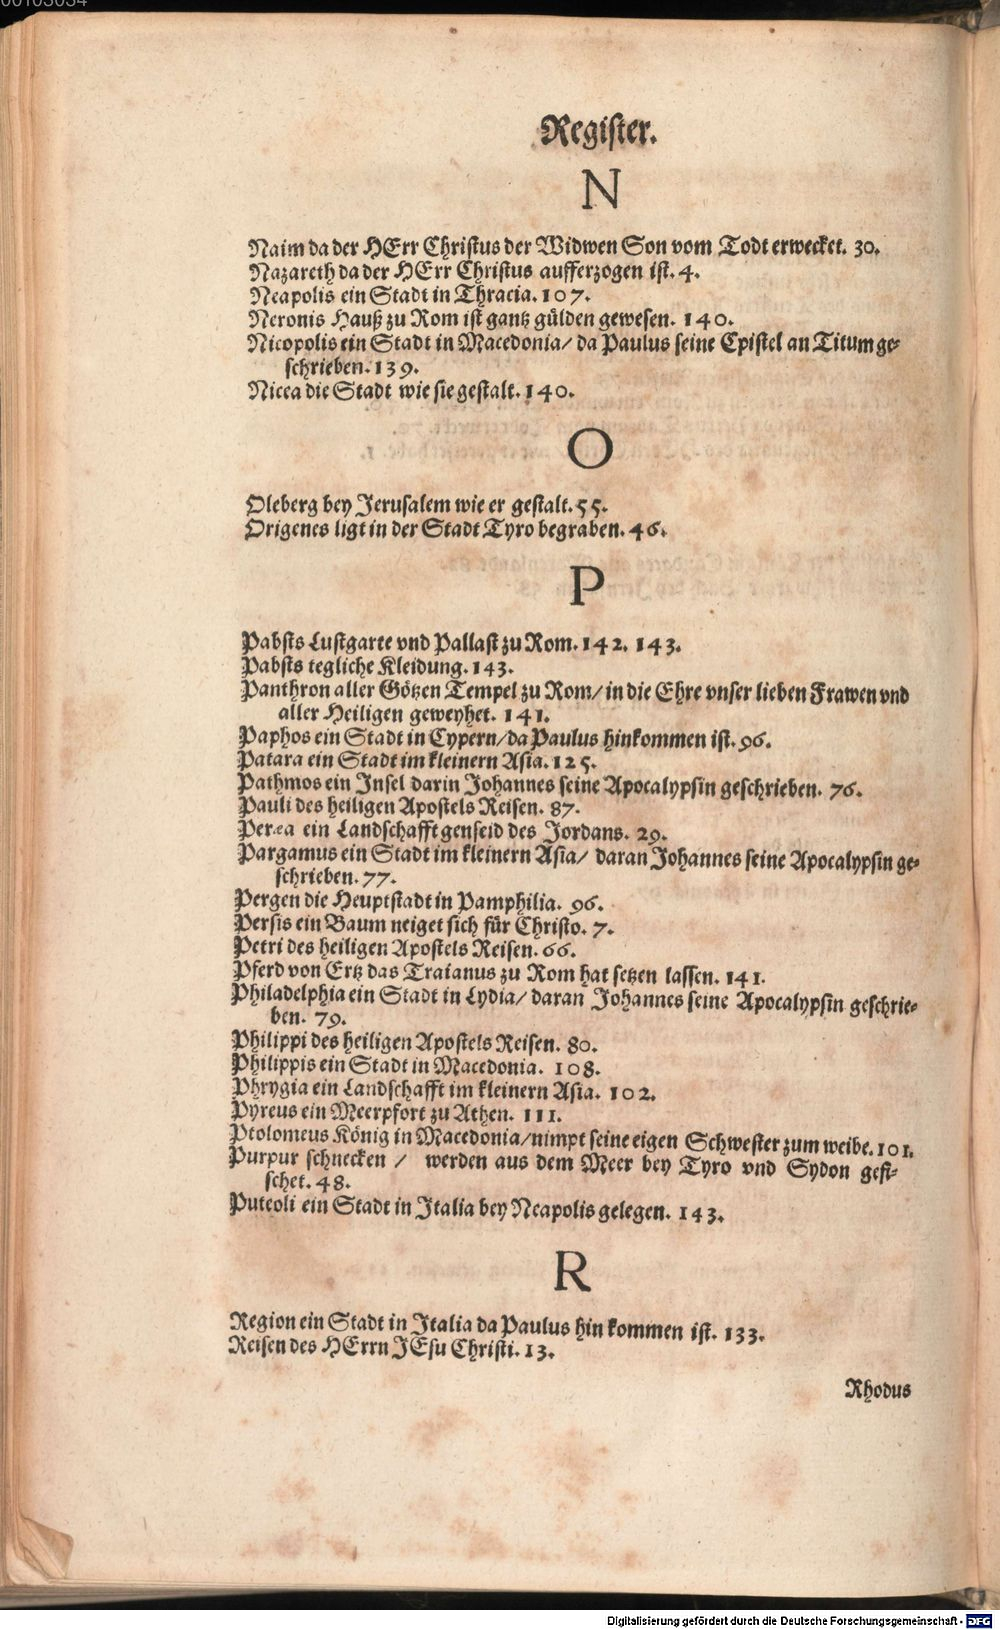 00103034
Register.
N
Naim da der HErr Christus der Widwen Son vom Todt erwecket. 30.
Nazareth da der HErr Christus aufferzogen ist. 4.
Neapolis ein Stadt in Thracia. 107.
Neronis Hauß zu Rom ist gantz gülden gewesen. 140.
Nicopolis ein Stadt in Macedonia/ da Paulus seine Epistel an Titum ge-
schrieben. 139.
Nicea die Stadt wie sie gestalt. 140.
O
Oleberg bey Jerusalem wie er gestalt. 55.
Origenes ligt in der Stadt Tyro begraben. 46.
P
Pabsts Lustgarte vnd Pallast zu Rom. 142. 143.
Pabsts tegliche Kleidung. 143.
Panthron aller Götzen Tempel zu Rom/ in die Ehre vnser lieben Frawen vnd
aller Heiligen geweyhet. 141.
Paphos ein Stadt in Cypern/ da Paulus hinkommen ist. 96.
Patara ein Stadt im kleinern Asia. 125.
Pathmos ein Insel darin Johannes seine Apocalypsin geschrieben. 76.
Pauli des heiligen Apostels Reisen. 87.
Peræa ein Landschafft genseid des Jordans. 29.
Pargamus ein Stadt im kleinern Asia/ daran Johannes seine Apocalypsin ge-
schrieben. 77.
Pergen die Heuptstadt in Pamphilia. 96.
Persis ein Baum neiget sich für Christo. 7.
Petri des heiligen Apostels Reisen. 66.
Pferd von Ertz das Traianus zu Rom hat setzen lassen. 141.
Philadelphia ein Stadt in Lydia/ daran Johannes seine Apocalypsin geschrie-
ben. 79.
Philippi des heiligen Apostels Reisen. 80.
Philippis ein Stadt in Macedonia. 108.
Phrygia ein Landschafft im kleinern Asia. 102.
Pyreus ein Meerpfort zu Athen. 111.
Ptolomeus König in Macedonia/ nimpt seine eigen Schwester zum weibe. 101.
Purpur schnecken / werden aus dem Meer bey Tyro vnd Sydon gefi-
schet. 48.
Puteoli ein Stadt in Italia bey Neapolis gelegen. 143.
R
Region ein Stadt in Italia da Paulus hin kommen ist. 133.
Reisen des HErrn JEsu Christi. 13.
Rhodus
Digitalisierung gefördert durch die Deutsche Forschungsgemeinschaft - DFG